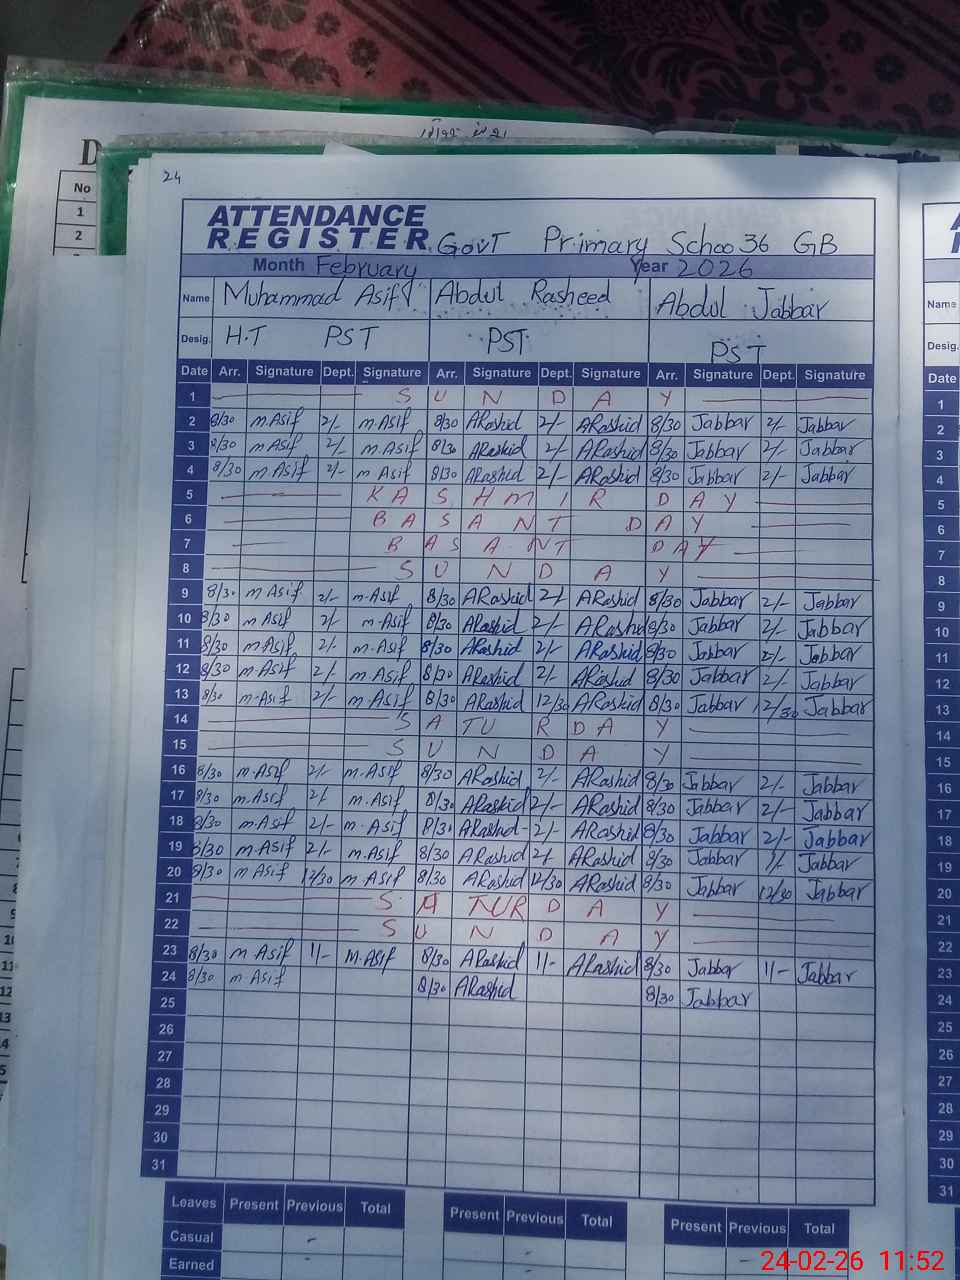 24
ATTENDANCE
REGISTER Govt Primary Schoo 36 GB
Month February Year 2026
Name Muhammad Asif Abdul Rasheed Abdul Jabbar
Desig. H.T PST PST PST
Date Arr. Signature Dept. Signature Arr. Signature Dept. Signature Arr. Signature Dept. Signature
1 SUNDAY
2 8/30 m.Asif 2/- m.Asif 8/30 ARashid 2/- ARashid 8/30 Jabbar 2/- Jabbar
3 8/30 m.Asif 2/- m.Asif 8/30 ARashid 2/- ARashid 8/30 Jabbar 2/- Jabbar
4 8/30 m Asif 2/- m Asif 8/30 ARashid 2/- ARashid 8/30 Jabbar 2/- Jabbar
5 KASHMIR DAY
6 BASANT DAY
7 BASANT DAY
8 SUNDAY
9 8/30 m Asif 2/- m.Asif 8/30 ARashid 2/- ARashid 8/30 Jabbar 2/- Jabbar
10 8/30 m Asif 2/- m.Asif 8/30 ARashid 2/- ARashid 8/30 Jabbar 2/- Jabbar
11 8/30 m.Asif 2/- m.Asif 8/30 ARashid 2/- ARashid 8/30 Jabbar 2/- Jabbar
12 8/30 m.Asif 2/- m.Asif 8/30 ARashid 2/- ARashid 8/30 Jabbar 2/- Jabbar
13 8/30 m-Asif 2/- m Asif 8/30 ARashid 12/30 ARashid 8/30 Jabbar 12/30 Jabbar
14 SATURDAY
15 SUNDAY
16 8/30 m.Asif 2/- m.Asif 8/30 ARashid 2/- ARashid 8/30 Jabbar 2/- Jabbar
17 8/30 m.Asif 2/- m.Asif 8/30 ARashid 2/- ARashid 8/30 Jabbar 2/- Jabbar
18 8/30 m.Asif 2/- m.Asif 8/30 ARashid 2/- ARashid 8/30 Jabbar 2/- Jabbar
19 8/30 m.Asif 2/- m.Asif 8/30 ARashid 2/- ARashid 8/30 Jabbar Jabbar
20 8/30 m Asif 12/30 m.Asif 8/30 ARashid 12/30 ARashid 8/30 Jabbar 12/30 Jabbar
21 SATURDAY
22 SUNDAY
23 8/30 m Asif 1/- M.Asif 8/30 ARashid 1/- ARashid 8/30 Jabbar 1/- Jabbar
24 8/30 m Asif 8/30 ARashid 8/30 Jabbar
25
26
27
28
29
30
31
Leaves Present Previous Total Present Previous Total Present Previous Total
Casual -
Earned - - -
No
1
2
Name
Desig.
Date
1
2
3
4
5
6
7
8
9
10
11
12
13
14
15
16
17
18
19
20
21
22
23
24
25
26
27
28
29
30
31
24-02-26 11:52